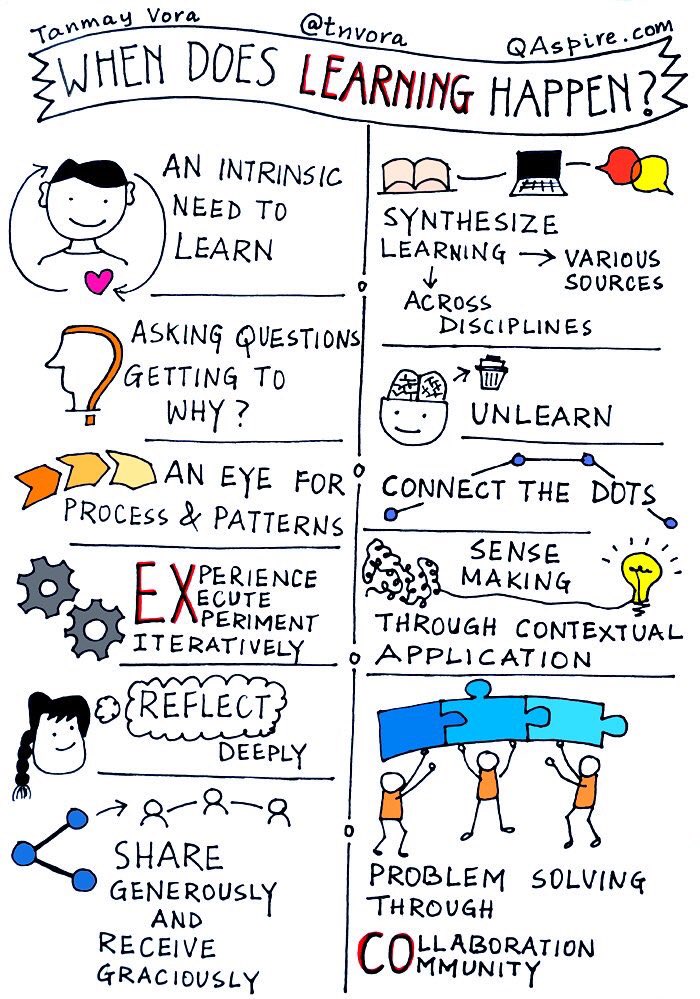 Tanmay Vora
@tnvora
QAspire.com
WHEN DOES LEARNING HAPPEN?
AN INTRINSIC
NEED TO
LEARN
ASKING QUESTIONS
GETTING TO
WHY?
AN EYE FOR
PROCESS & PATTERNS
EXPERIENCE
EXECUTE
EXPERIMENT
ITERATIVELY
REFLECT
DEEPLY
SHARE
GENEROUSLY
AND
RECEIVE
GRACIOUSLY
SYNTHESIZE
LEARNING → VARIOUS
SOURCES
↓
ACROSS
DISCIPLINES
UNLEARN
CONNECT THE DOTS
SENSE
MAKING
THROUGH CONTEXTUAL
APPLICATION
PROBLEM SOLVING
THROUGH
COLLABORATION
COMMUNITY